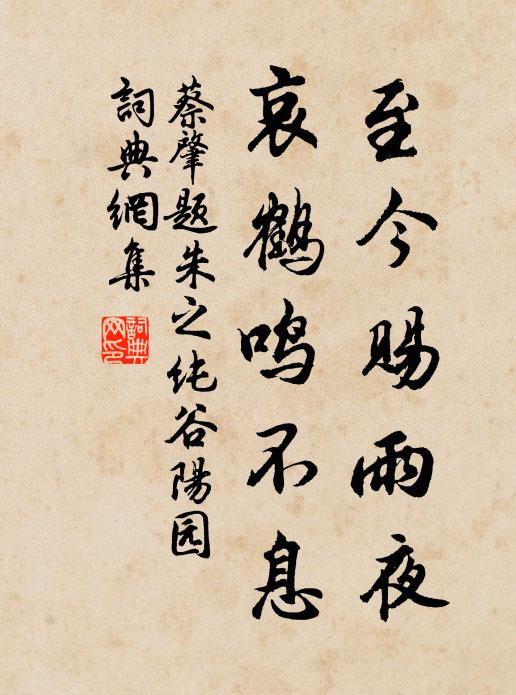 至今赐雨夜
哀鹤鸣不息
蔡肇题朱之纯谷陽园
詞典網集
詞典网印